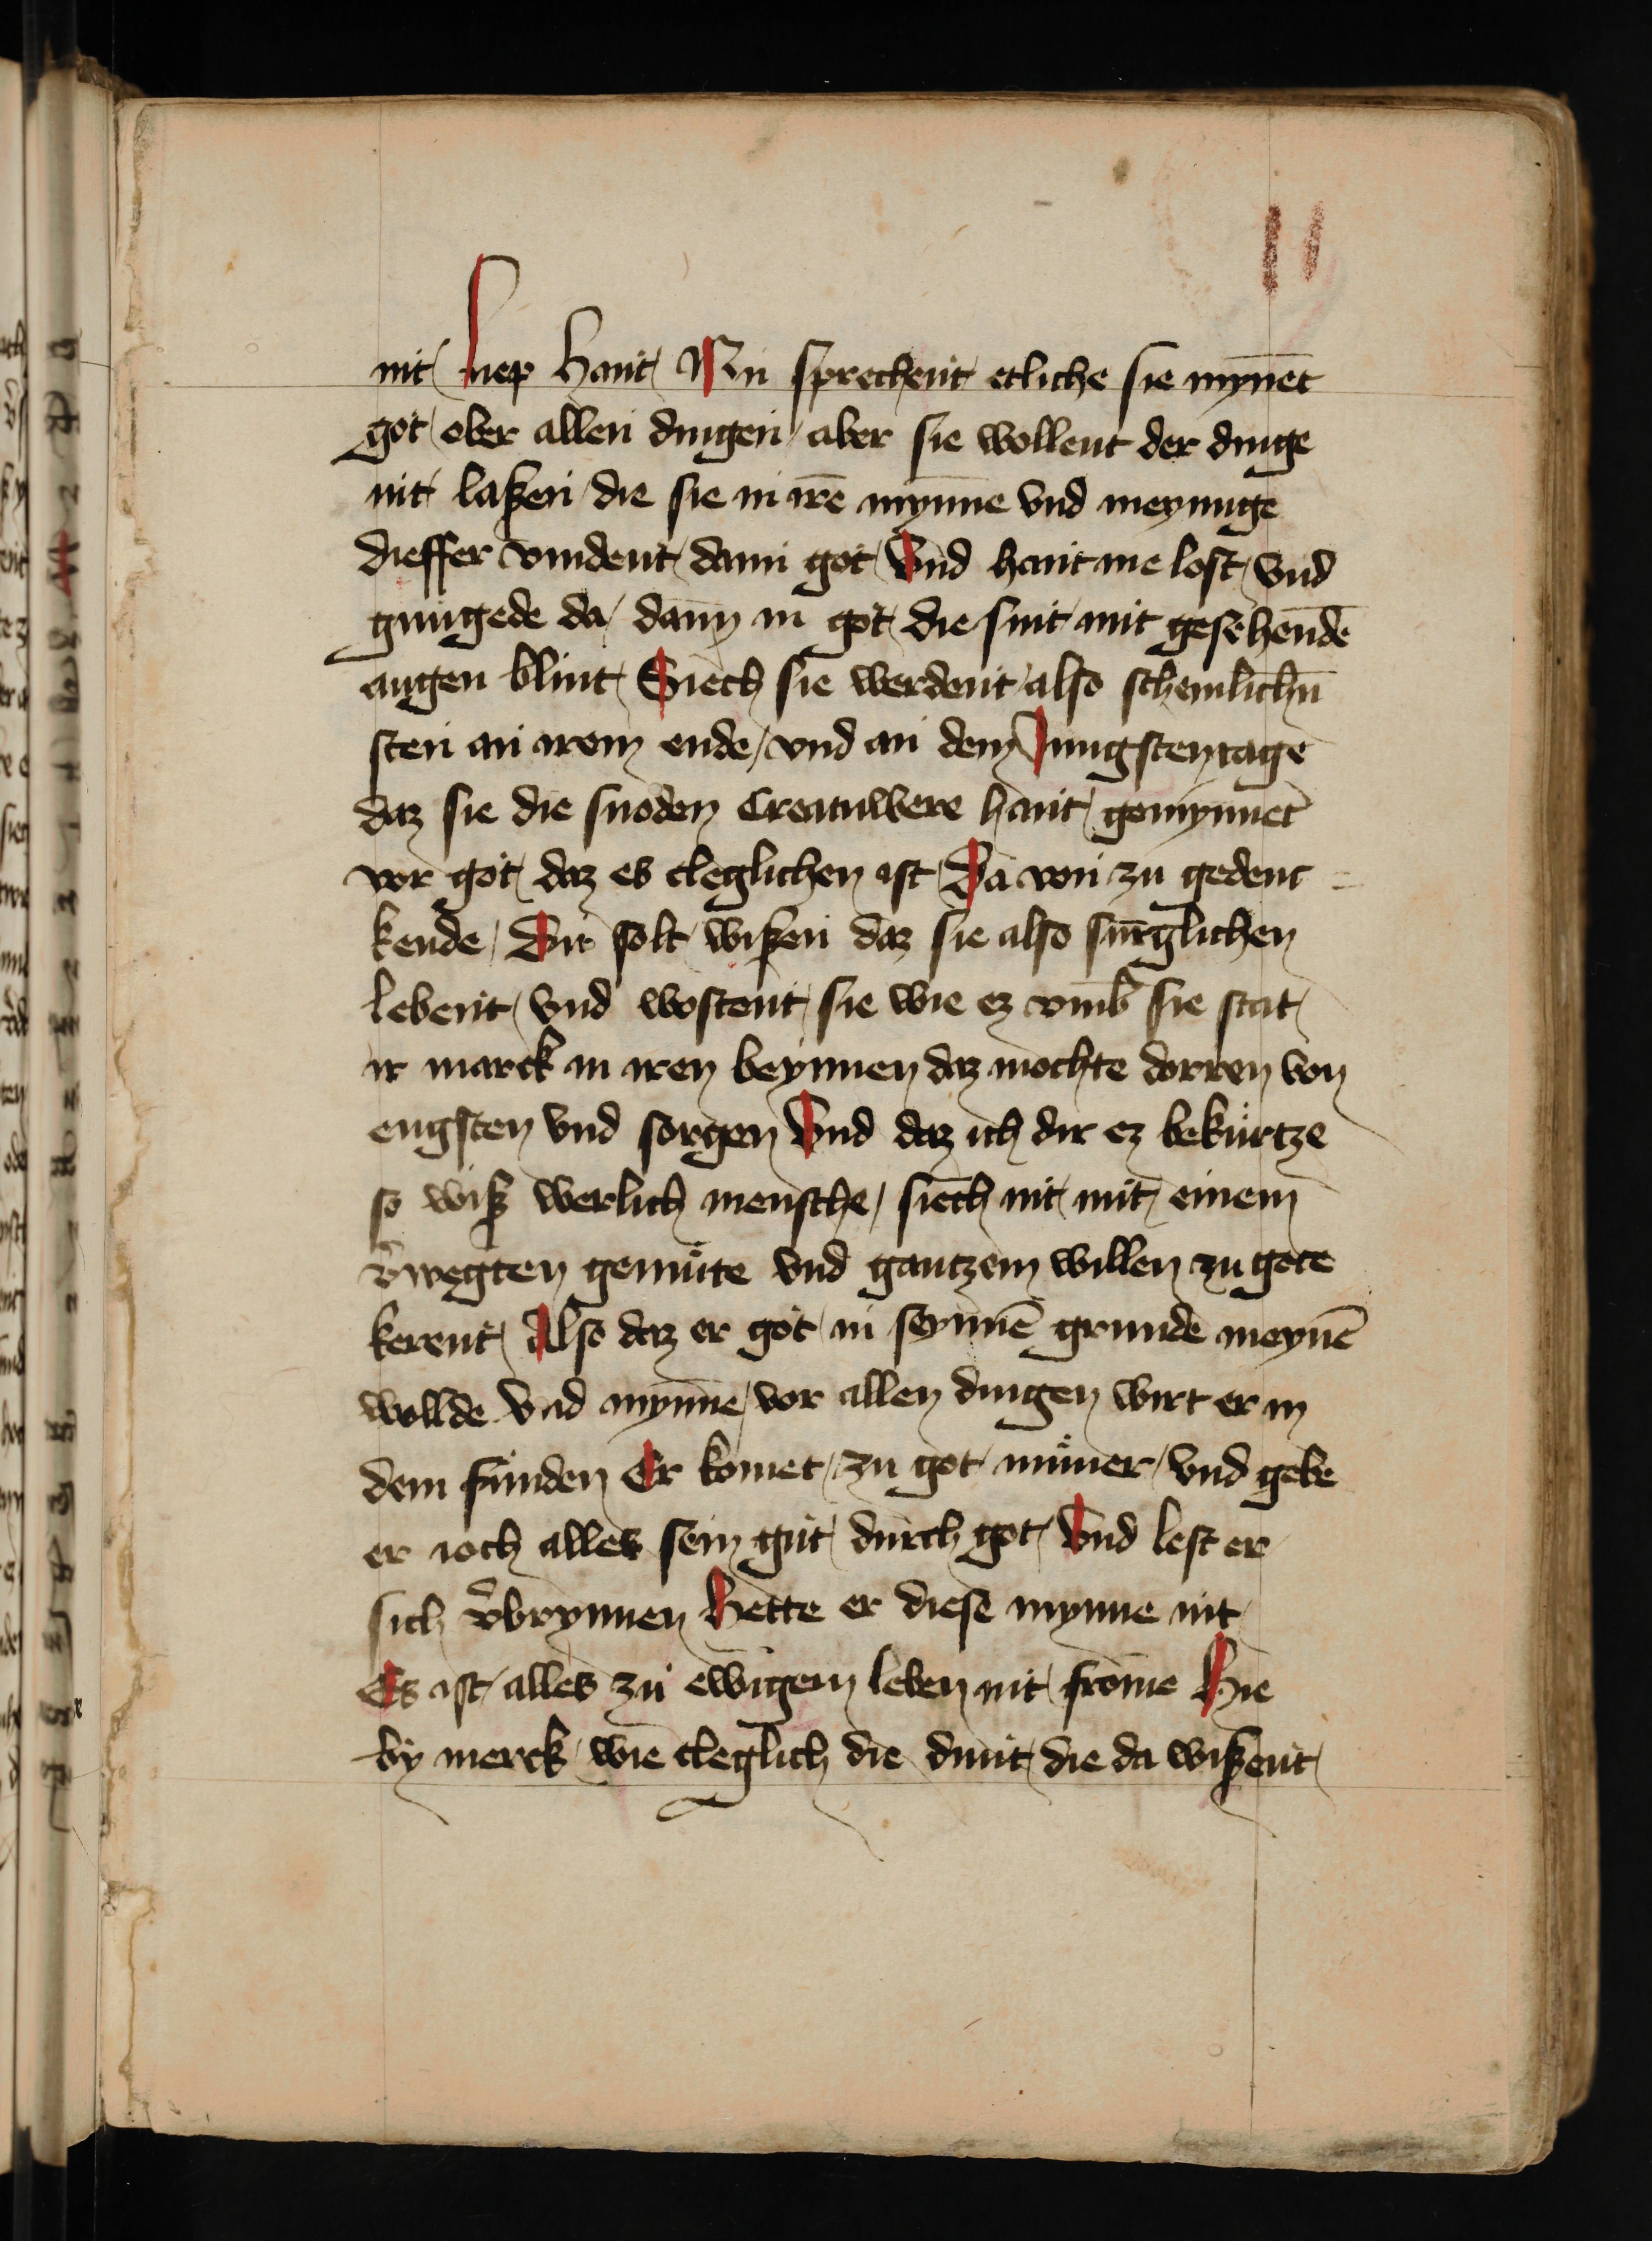 11
nit liep hant Nu sprechent etliche sie mynēt
got ober allen dingen aber sie wollent der dinge
nit laßen die sie in irē mynne vnd meynūge
dieffer vindent dann got Vnd hant me lost vnd
gnügede da dann in got die sint mit gesehendē
augen blint Siech sie werdent also schemlichn̄
sten an irem ende vnd an dem Jungsten tage
daz sie die snoden Creatuwere hant gemynnet
vor got daz es cleglichen ist Da von zu gedenc
kende Du solt wißen daz sie also surglichen
lebent vnd wostent sie wie ez vmb sie stat
ir marck in iren beynnen daz mochte dorren von
engsten vnd sorgen Vnd daz ich dir ez bekürtze
so wiß werlich mensche siech nit mit einem
v̄wegten gemüte vnd gantzem willen zu gote
kerent Also daz er got in seynnē grunde meynē
wollde vnd mynne vor allen dingen wirt er in
dem funden Er komet zu got nümer vnd gebe
er ioch alles sein gut durch got Vnd lest er
sich v̄brynnen Hette er diese mynne nit
Es ist alles zu ewigem leben nit frome Hie
by merck wie cleglich die dunt die da wißent